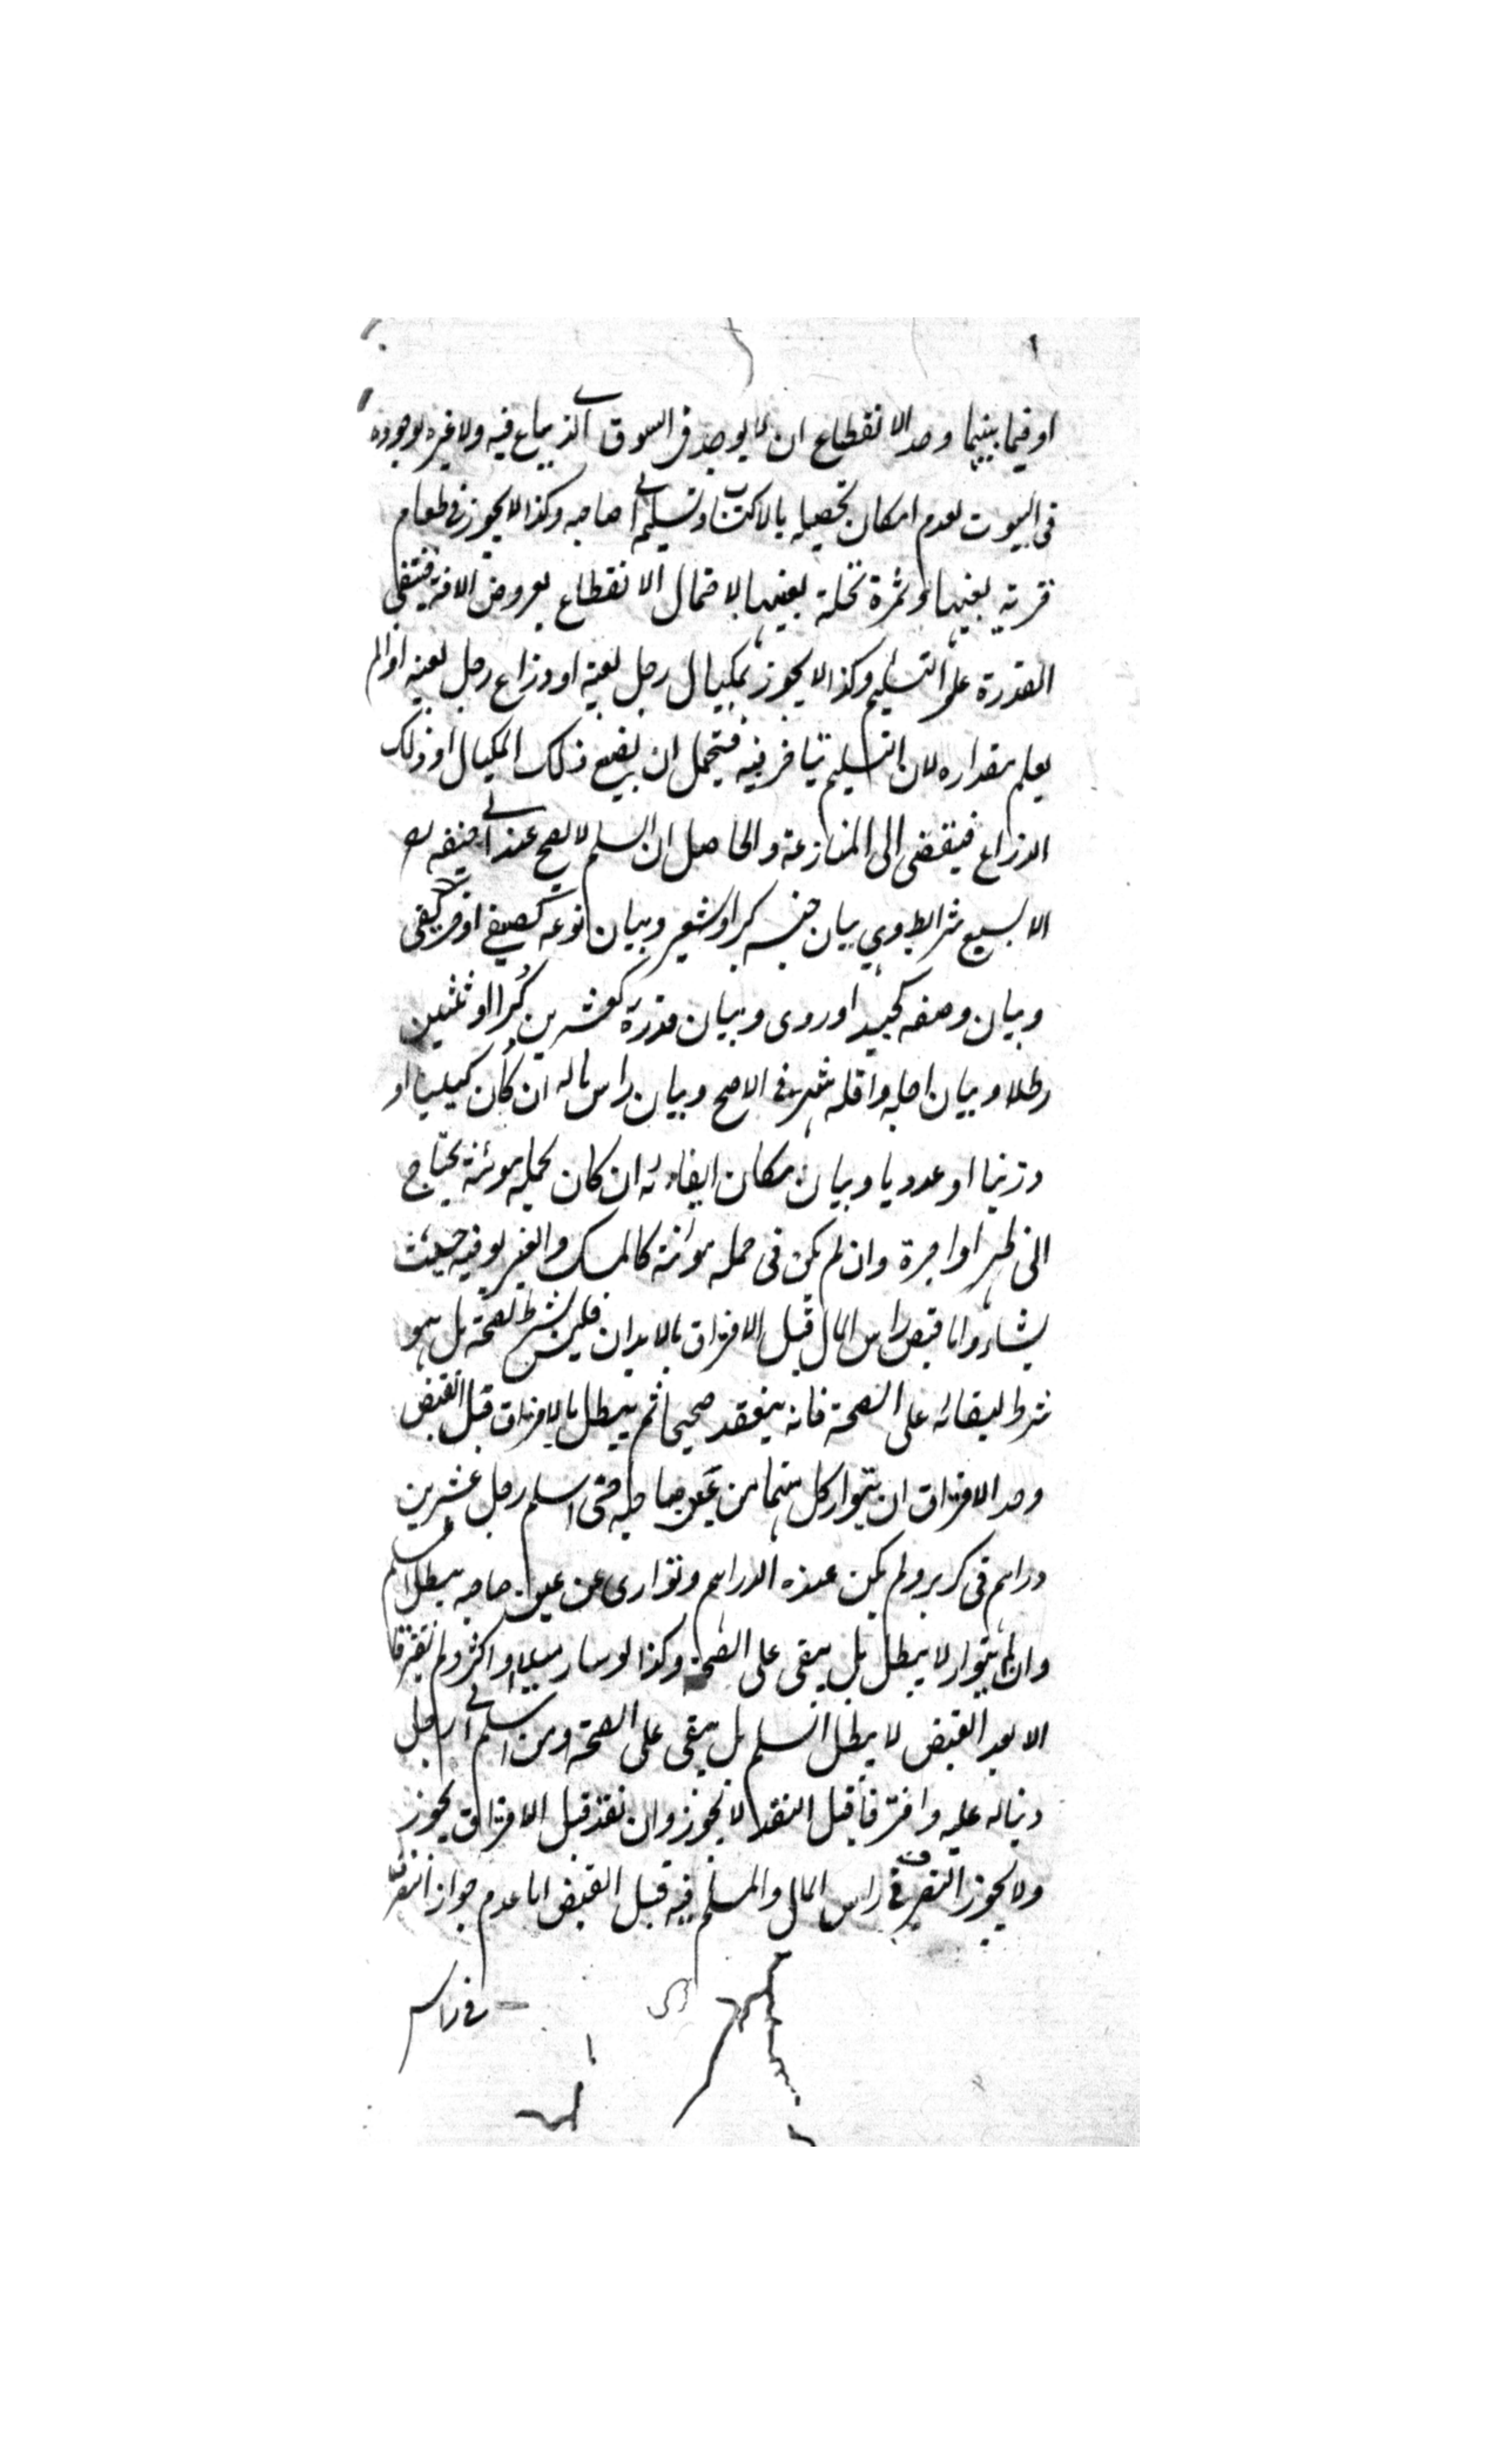 او فيما بينهما وحد الانقطاع ان لا يوجد فى السوق الذى يباع فيه ولا عبرة لوجوده
فى البيوت لعدم امكان تحصيله بالاكتساب وتسليمه الى صاحبه وكذا لا يجوز فى طعام
قرية بعينها او ثمرة نخلة بعينها لاحتمال الانقطاع بعروض الافة فينتفى
القدرة على التسليم وكذا لا يجوز بمكيال رجل بعينه او ذراع رجل بعينه اذا لم
يعلم مقداره لان التسليم يتأخر فيه فيحتمل ان يضيع ذلك المكيال او ذلك
الذراع فيفضى الى المنازعة والحاصل ان السلم لا يصح عند ابى حنيفه رح
الا بسبع شرايط وهى بيان جنسه كبر او شعير وبيان نوعه كصيفى او خريفى
وبيان وصفه كجيد او ردى وبيان قدره كعشرين كُرا او ثلثين
رطلا وبيان اجله واقله شهر فى الاصح وبيان راس ماله ان كان كيليا او
وزنيا او عدديا وبيان مكان ايفائه ان كان لحمله مؤنة يحتاج
الى ظهر او اجرة وان لم يكن فى حمله مؤانة كالمسك والعنبر يوفيه حيث
يشاء واما قبض راس المال قبل الافتراق بالابدان فليس بشرط لصحته بل هو
شرط لبقائه على الصحة فانه ينعقد صحيحا ثم يبطل بالافتراق قبل القبض
وحد الافتراق ان يتوار كل منهما من عين صاحبه حتى اسلم رجل عشرين
دراهم فى كر بر ولم يكن عنده الدراهم وتوارى عن عين صاحبه يبطل السلم
وان لم يتوار لا يبطل بل يبقى على الصحة وكذا لو سار ميلا او اكثر ولم يفترقا
الا بعد القبض لا يبطل السلم بل يبقى على الصحة ومن اسلم الى رجل
دينا له عليه وافترقا قبل النقد لا يجوز وان نقد قبل الافتراق يجوز
ولا يجوز التصرف فى راس المال والمسلم فيه قبل القبض اما عدم جواز التصرف
فى راس